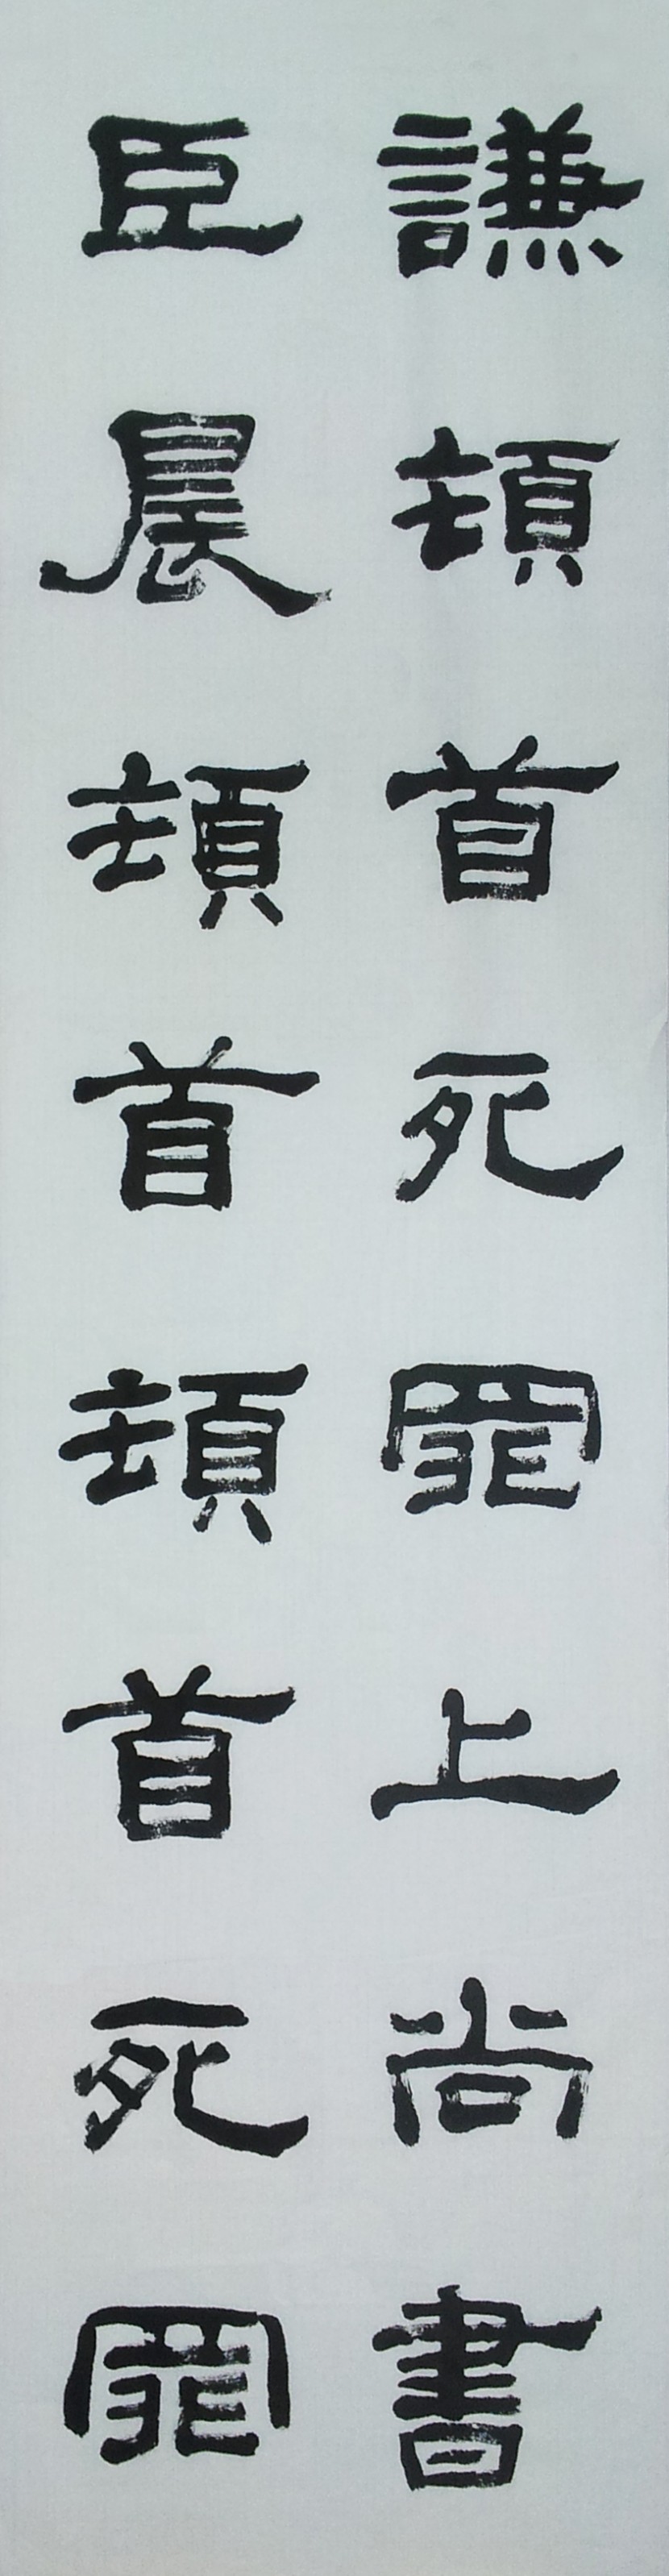 謙頓首死罪上尚書
臣晨頓首頓首死罪